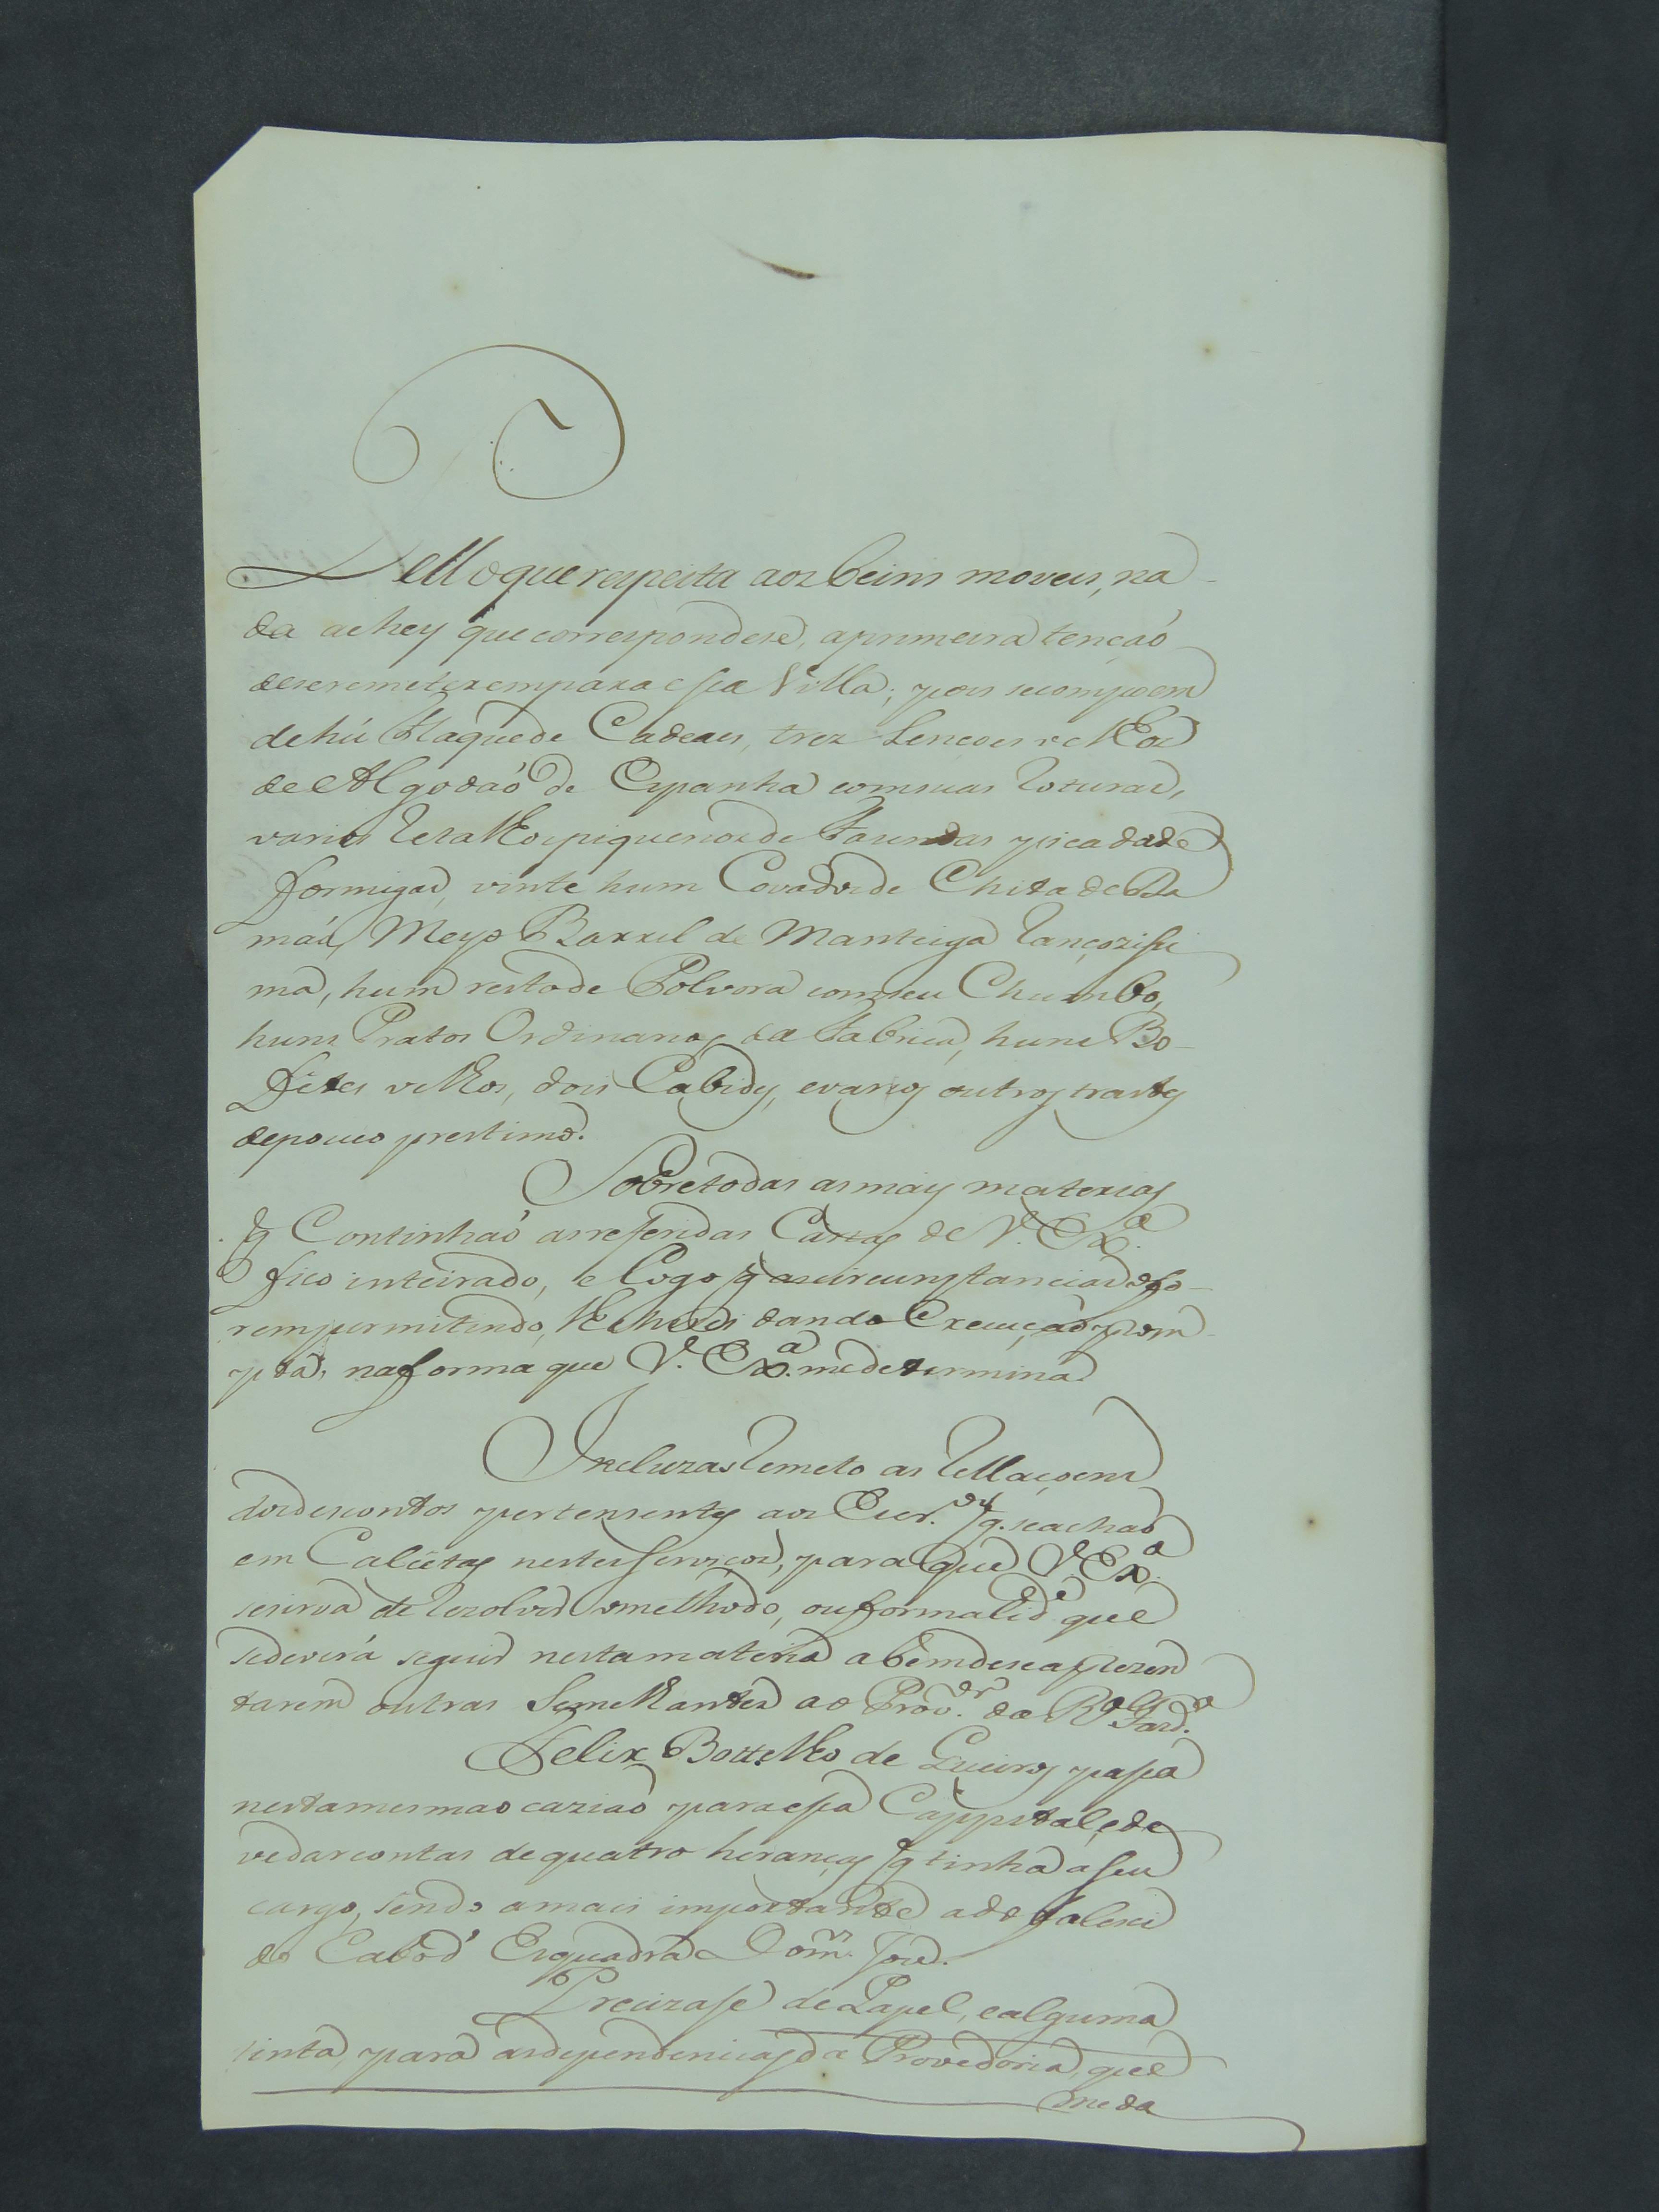 Pello que respeita aos beins moveis, na-
da achey que correspondese, a primeira tençaõ
de se remeterem para essa Villa; pois se compoem
de hú Flaque de Cadeas, trez Lencoes velhos
de Algodaõ de Espanha com suas roturas,
varios retalhos piquenos de Fasendas picadas de
formigas, vinte hum Covados de Chita de Da
máo, Meyo Barril de Manteiga rançozissi
ma, hum resto de Polvora com seu Chumbo,
huns Pratos Ordinarios da Fabrica, huns Bo-
fétes velhos, dois Cabidis, e varios outros trastes
de pouco prestimo.
Sobre todas as mais materias
q Continhaõ as referidas Cartas de V. Exª.
fico inteirado, e logo q as circunstancias o fo-
rem permitindo, lhe hirei dando Execuçaõ prom-
pta, na forma que V. Exª. me determina.
Incluzas remeto as rellaçoens
dos descontos pertensentes aos q. se achaõ
em nestes serviços, para que V. Exª.
se sirva de rezolver o methodo, ou formalidᵉ que
se deverá seguir nesta materia a bem de se aprezen
tarem outras Semelhantes ao Provᵒʳ. da Rᵃˡ Fazdᵃ.
Felix Bottelho de Queiros passa
nesta mesma ocaziaõ para essa Cappital, e de
ve dar contas de quatro heranças q tinha a seu
cargo, sendo a mais importante a do falesci
do Cabo d' Esquadra Domᵒˢ. Joze.
Precizase de Papel, e alguma
tinta para as dependencias da Provedoria, que
me da